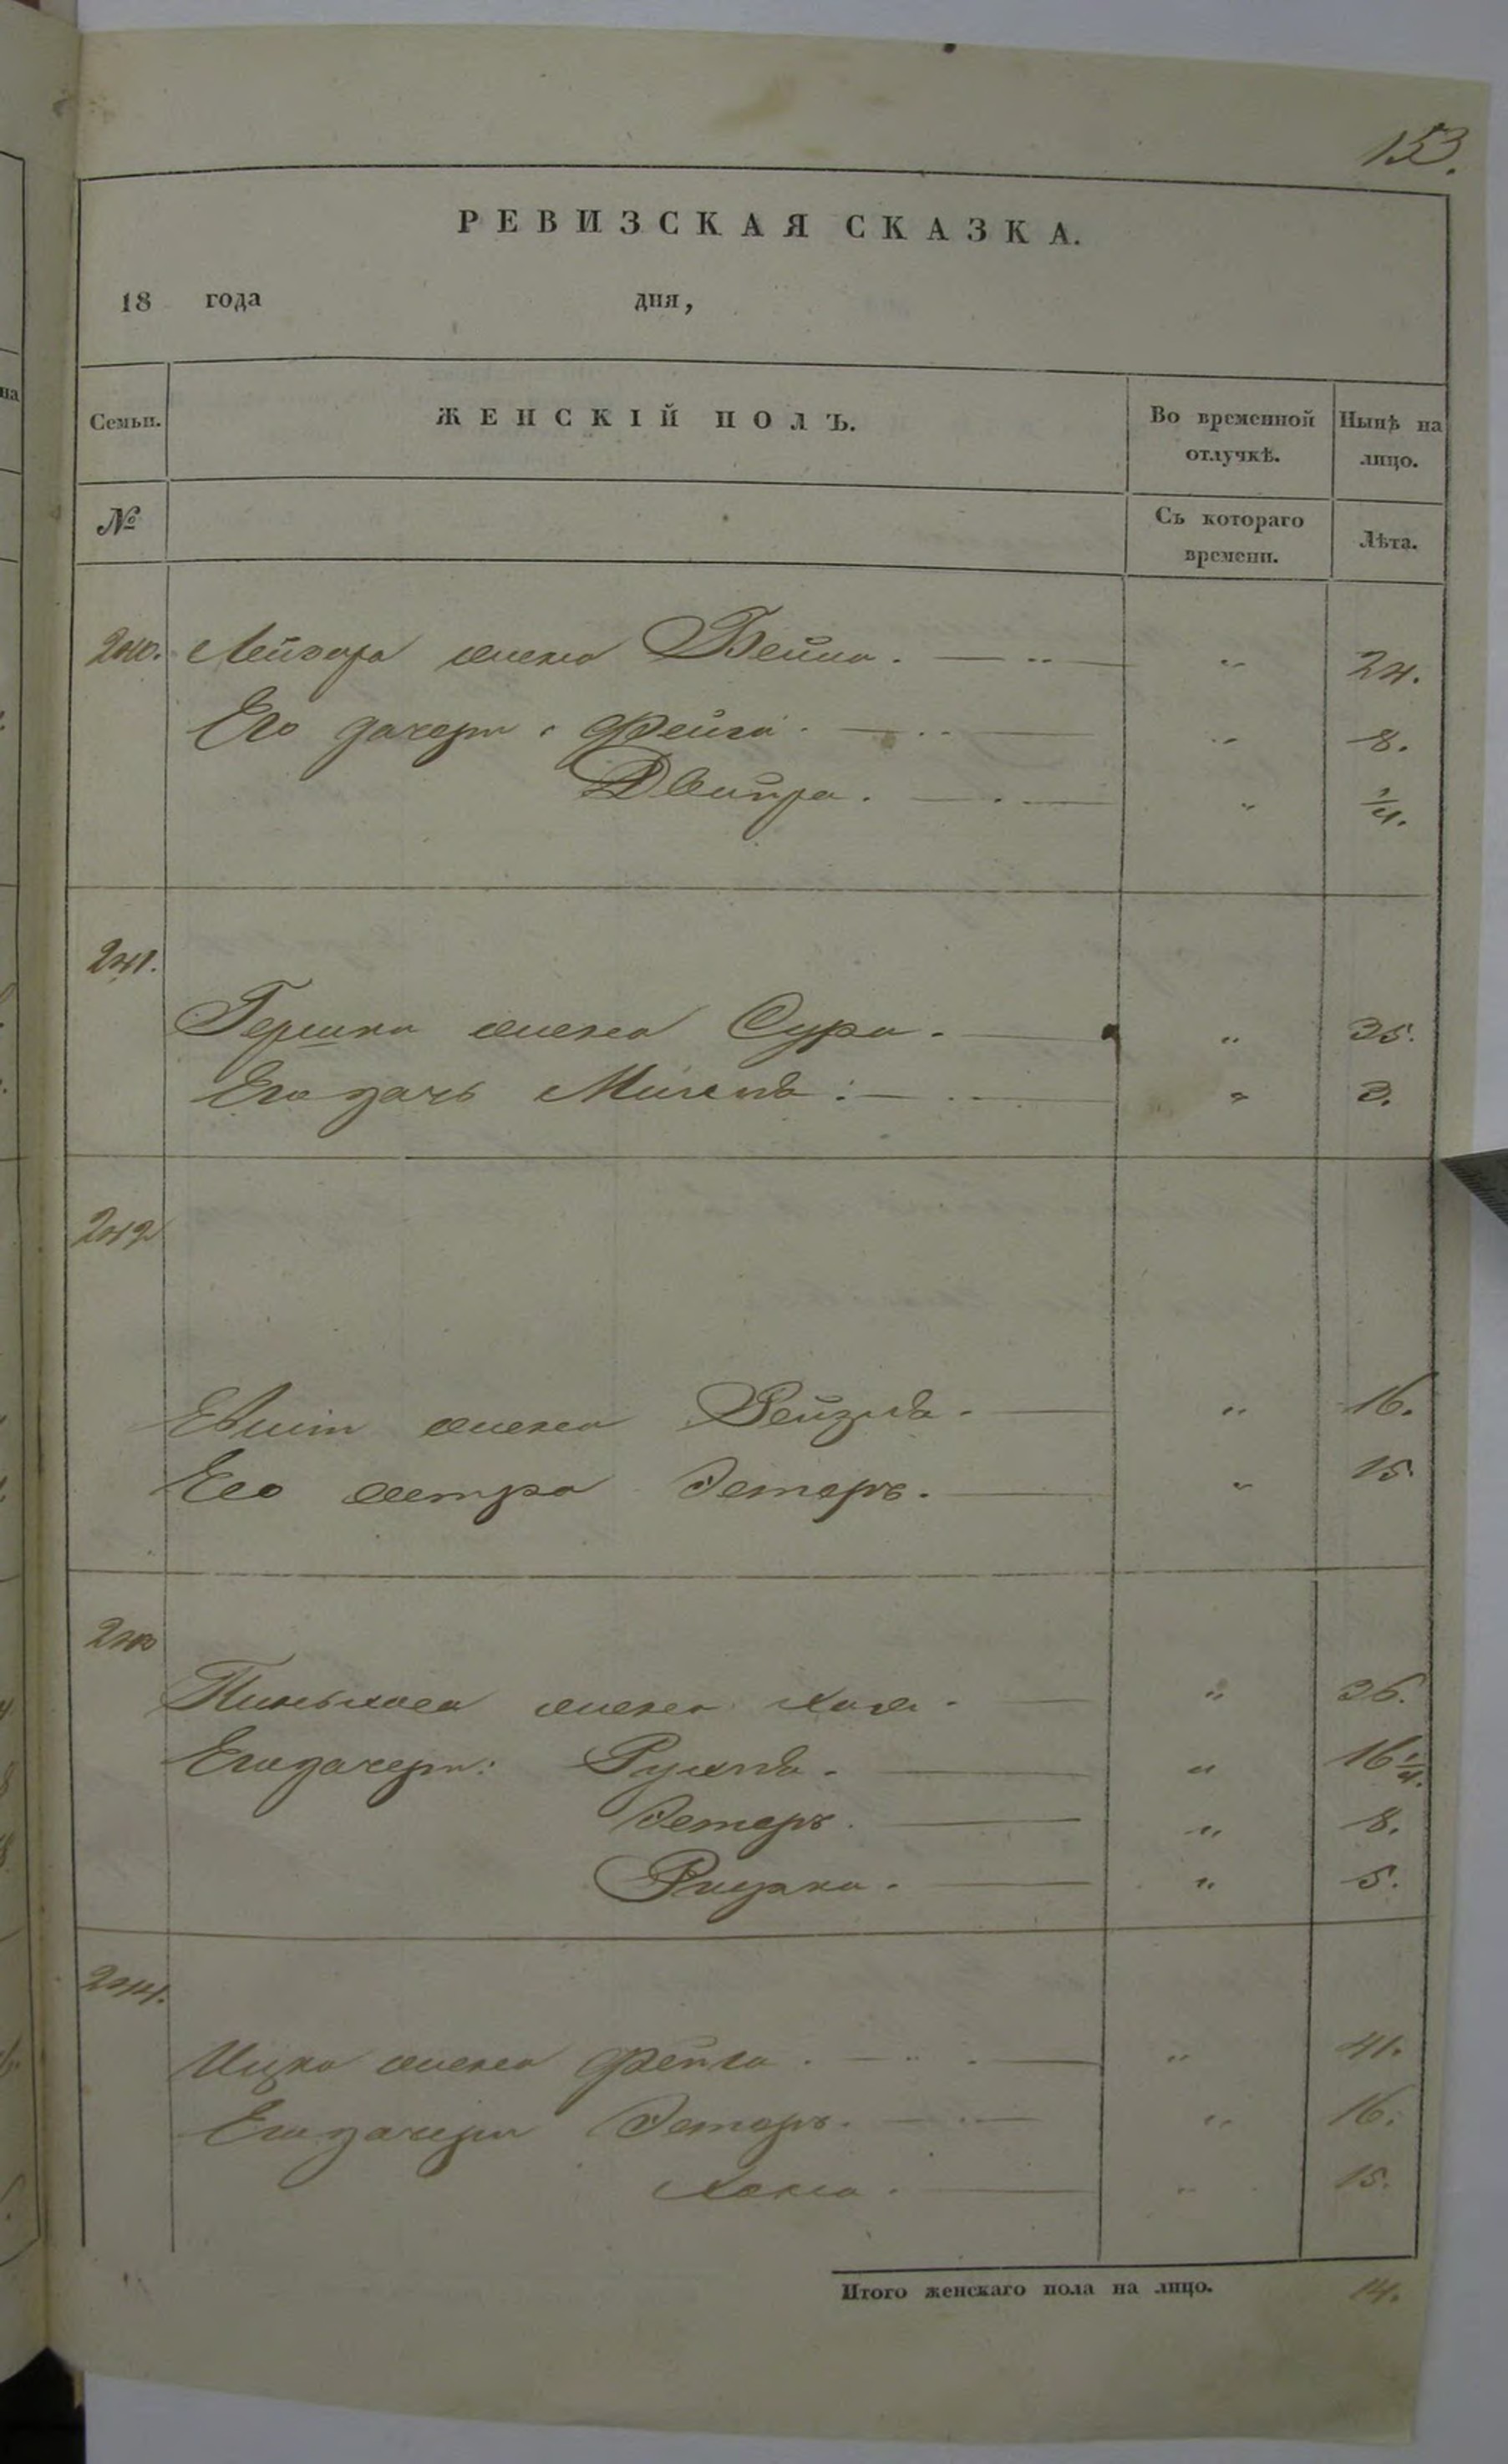 153.
РЕВИЗСКАЯ СКАЗКА.
18 года дня,
Семьи. ЖЕНСКІЙ ПОЛЪ. Во временной отлучкѣ. Нынѣ на лицо.
№ Съ котораго времени. Лѣта.
240. Лейзера жена Бейла. — „ 24.
Его дочери: Фейга. — „ 8.
Двойра. — „ 1/4.
241.
Гершка жена Сура. — „ 35.
Его дочь — „ 3.
242
жена Рейзля. — „ 16.
Его сестра Эстеръ. — „ 15
243
Пиньхаса жена Хая. — „ 36.
Его дочери: Рухля. — „ 16 1/4.
Эстеръ. — „ 8.
— „ 5.
244.
Ицка жена Фейга. — „ 41.
Его дочери Эстеръ. — „ 16.
— „ 15.
Итого женскаго пола на лицо. 14.